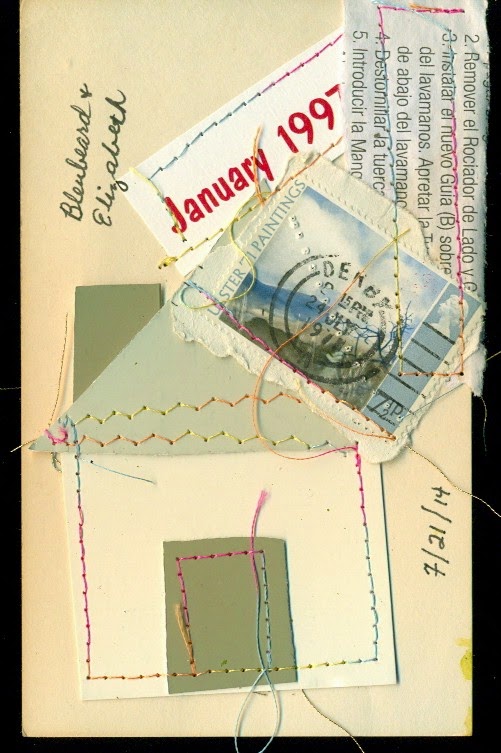 Bluebeard +
Elizabeth
January 1997
2. Remover el Rociador de Lado y G
3. Instalar el nuevo Guía (B) sobre
del lavamanos. Apretar la
4. Destornillar la tuerca
de abajo del lavamano
5. Introducir la Mano
PAINTINGS
7/21/14